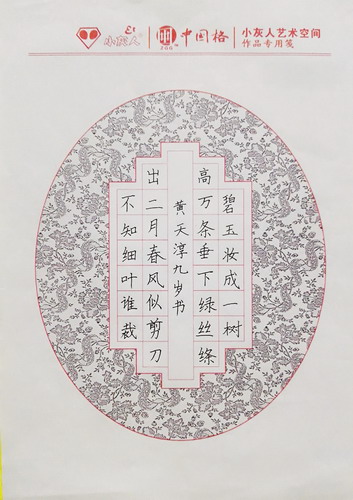 小灰人
中国格
小灰人艺术空间
作品专用笺
碧玉妆成一树
高万条垂下绿丝绦
不知细叶谁裁
出二月春风似剪刀
黄天淳九岁书